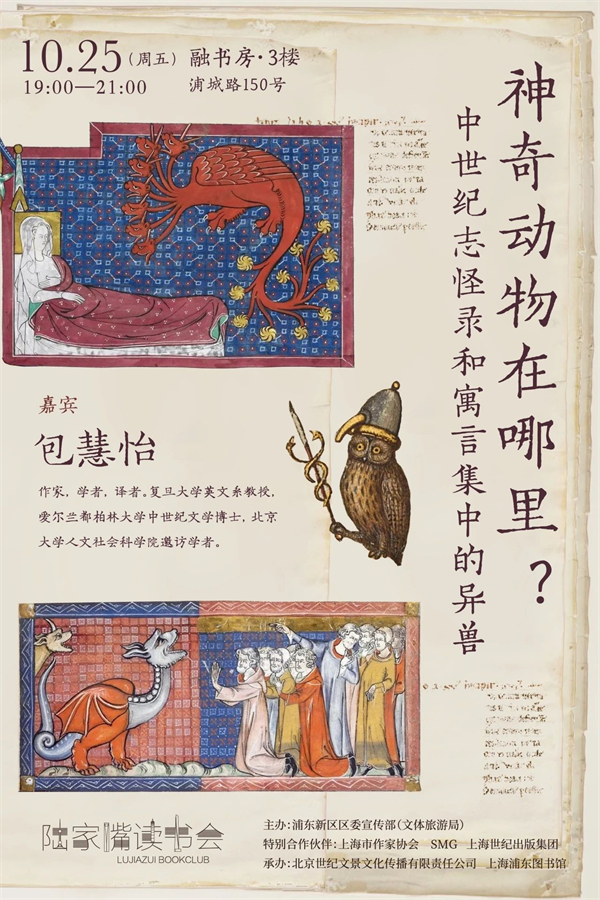 10.25（周五） 融书房·3楼
19:00—21:00 浦城路150号
神奇动物在哪里？
中世纪志怪录和寓言集中的异兽
嘉宾
包慧怡
作家，学者，译者。复旦大学英文系教授，
爱尔兰都柏林大学中世纪文学博士，北京
大学人文社会科学院邀访学者。
陆家嘴读书会
LUJIAZUI BOOKCLUB
主办：浦东新区区委宣传部（文体旅游局）
特别合作伙伴：上海市作家协会 SMG 上海世纪出版集团
承办：北京世纪文景文化传播有限责任公司 上海浦东图书馆